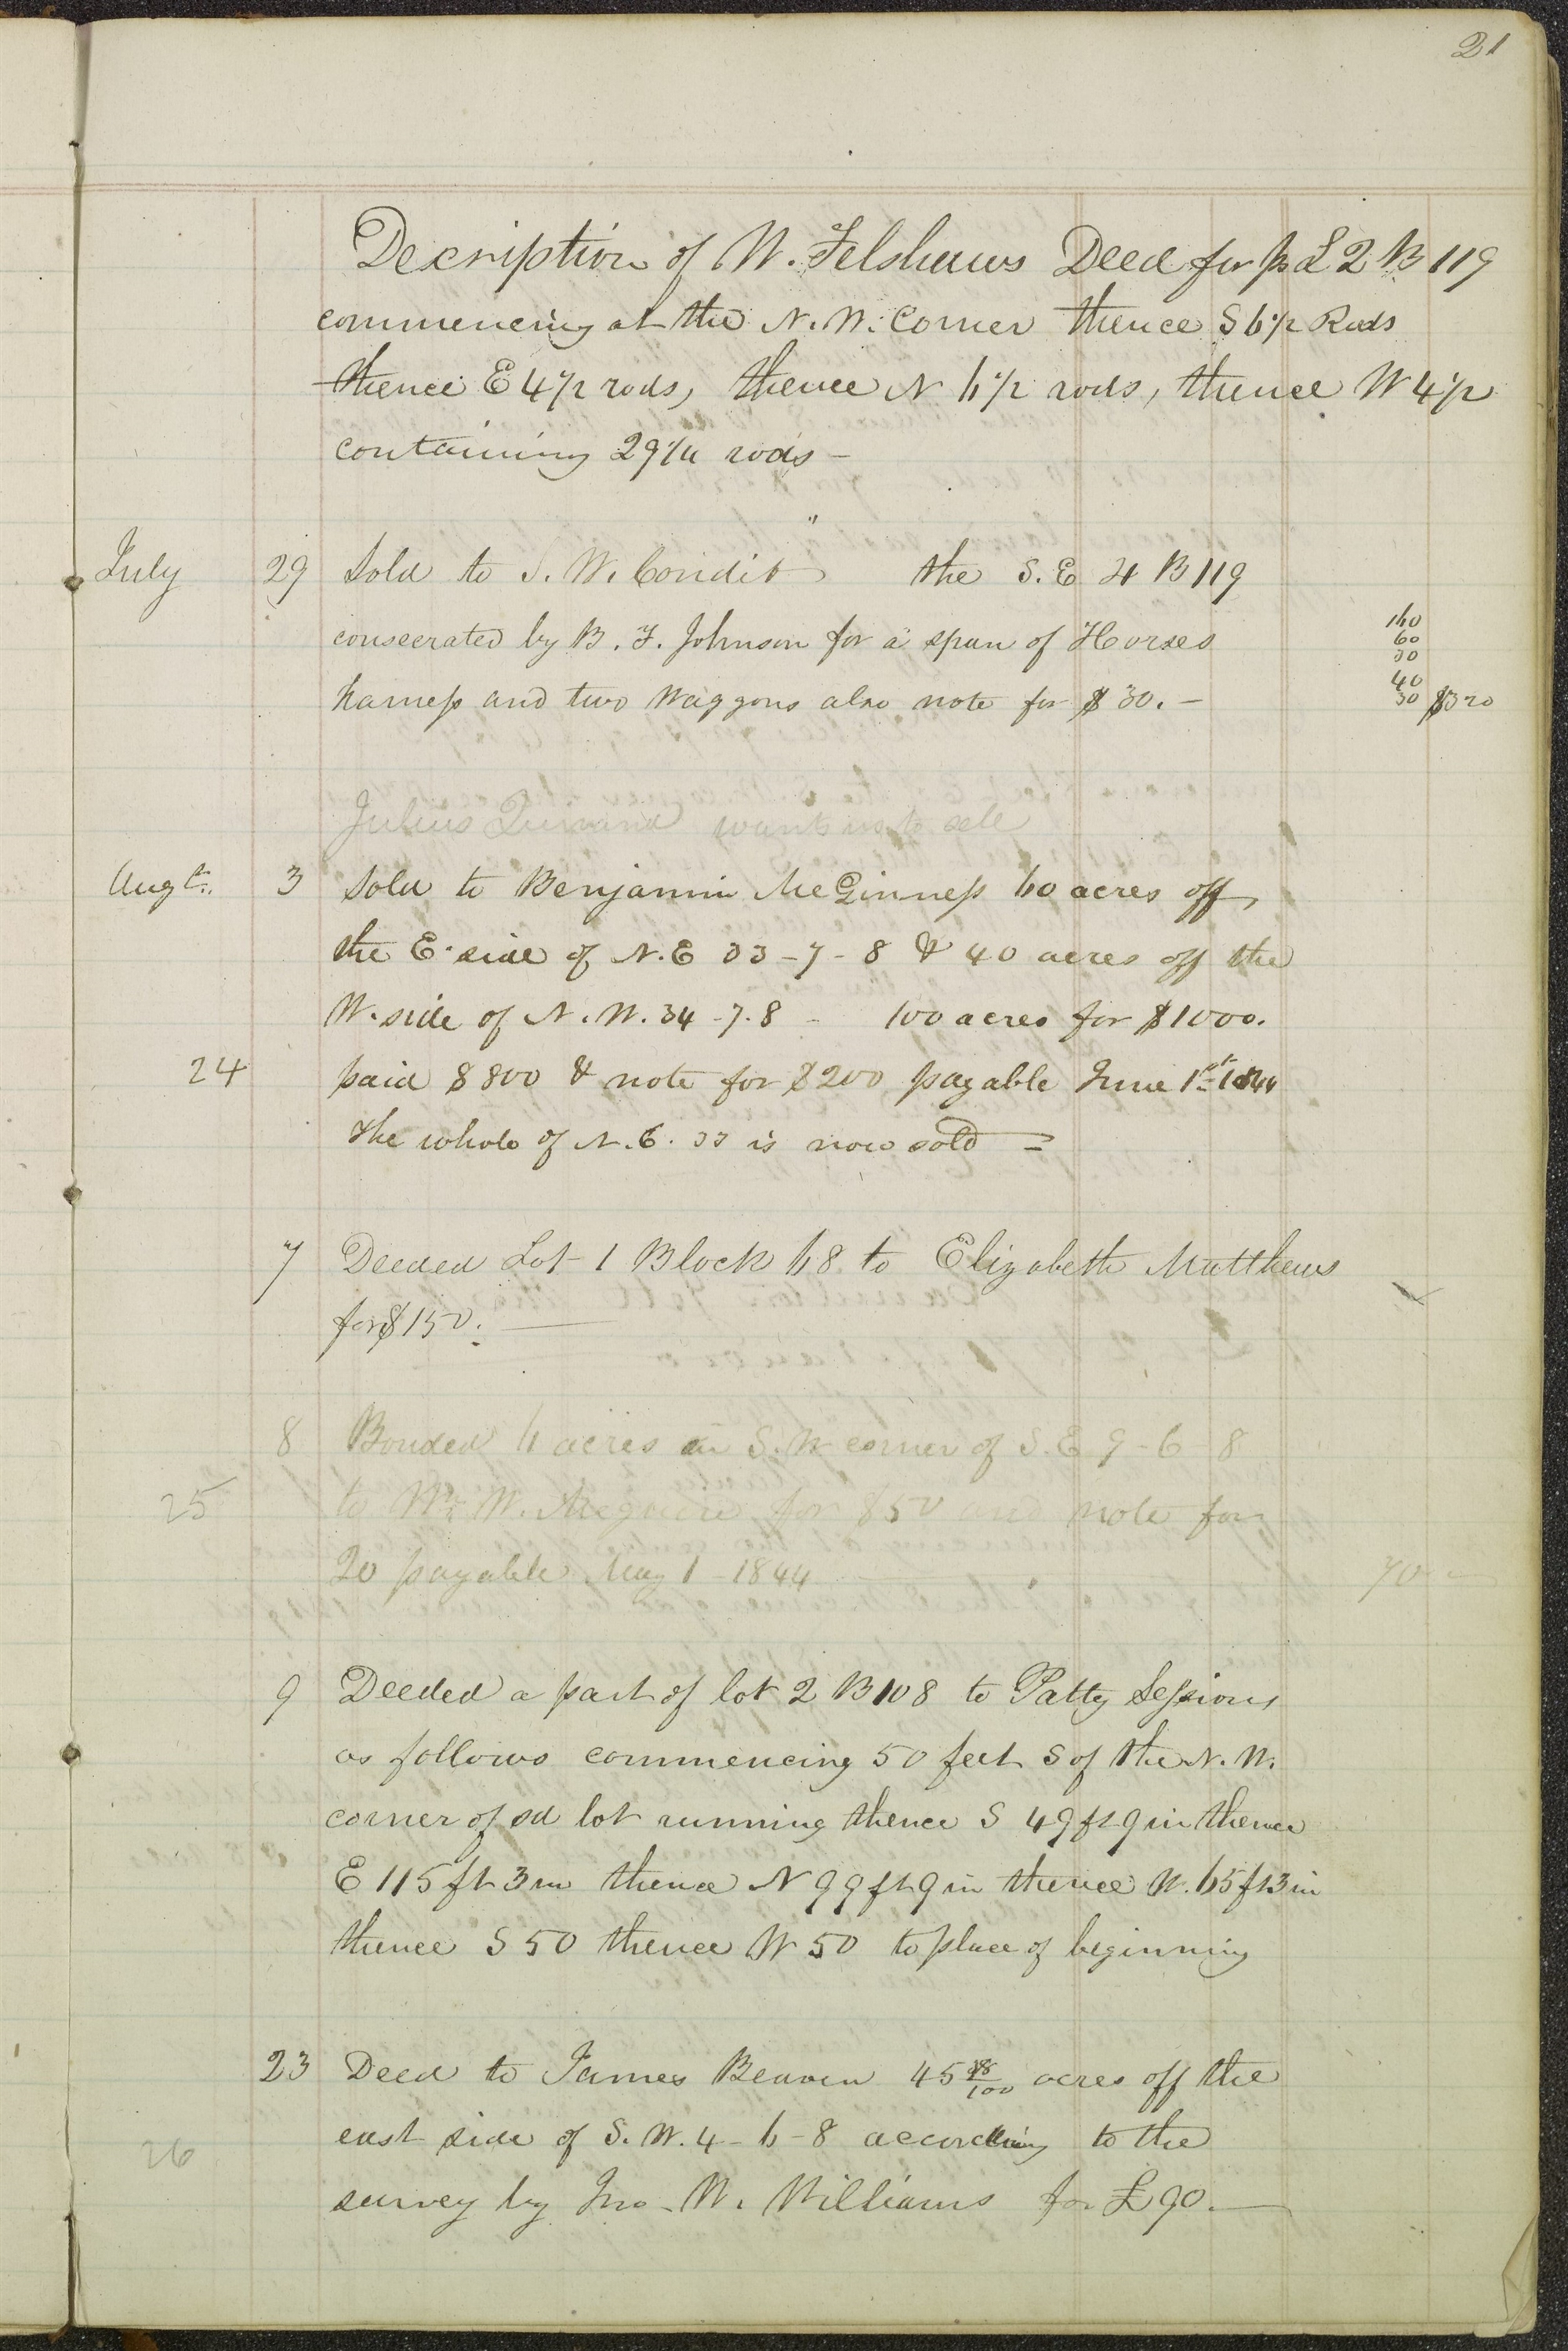 21
Description of W. Felshaws Deed for p L 2 B 119
commencing at the N. W. Corner thence S 6 1/2 Rods
thence E 4 1/2 rods, thence N 6 1/2 rods, thence W 4 1/2
containing 29 1/4 rods –
July 29 Sold to S. W. Condit " the S. E 4 B 119
consecrated by B. F. Johnson for a span of Horses 160 60 30
harness and two Waggons also note for $30. – 40 30 $320
Julius wants us to sell
Augt. 3 Sold to Benjamin McGinness 60 acres off
the E. side of N. E 33-7-8 & 40 acres off the
W. side of N. W. 34-7.8 – 100 acres for $1000.
24 paid $800 & note for $200 payable June 1st 1844
The whole of N. E. 33 is now sold =
7 Deeded Lot 1 Block 68 to Elizabeth Matthews
for $150. —
8 Bonded 6 acres on S. W corner of S. E 9-6-8
25 to Wm W. for $50 and note for
20 payable May 1 - 1844 70 –
9 Deeded a part of lot 2 B 108 to Patty Sessions
as follows commencing 50 feet S of the N. W.
corner of sd lot running thence S 49 ft 9 in thence
E 115 ft 3 in thence N 99 ft 9 in thence W. 65 ft 3 in
thence S 50 thence W 50 to place of beginning
23 Deed to James Beaven 45 /100 acres off the
east side of S. W. 4-6-8 according to the
26 survey by Jno. W. Williams for £90. —